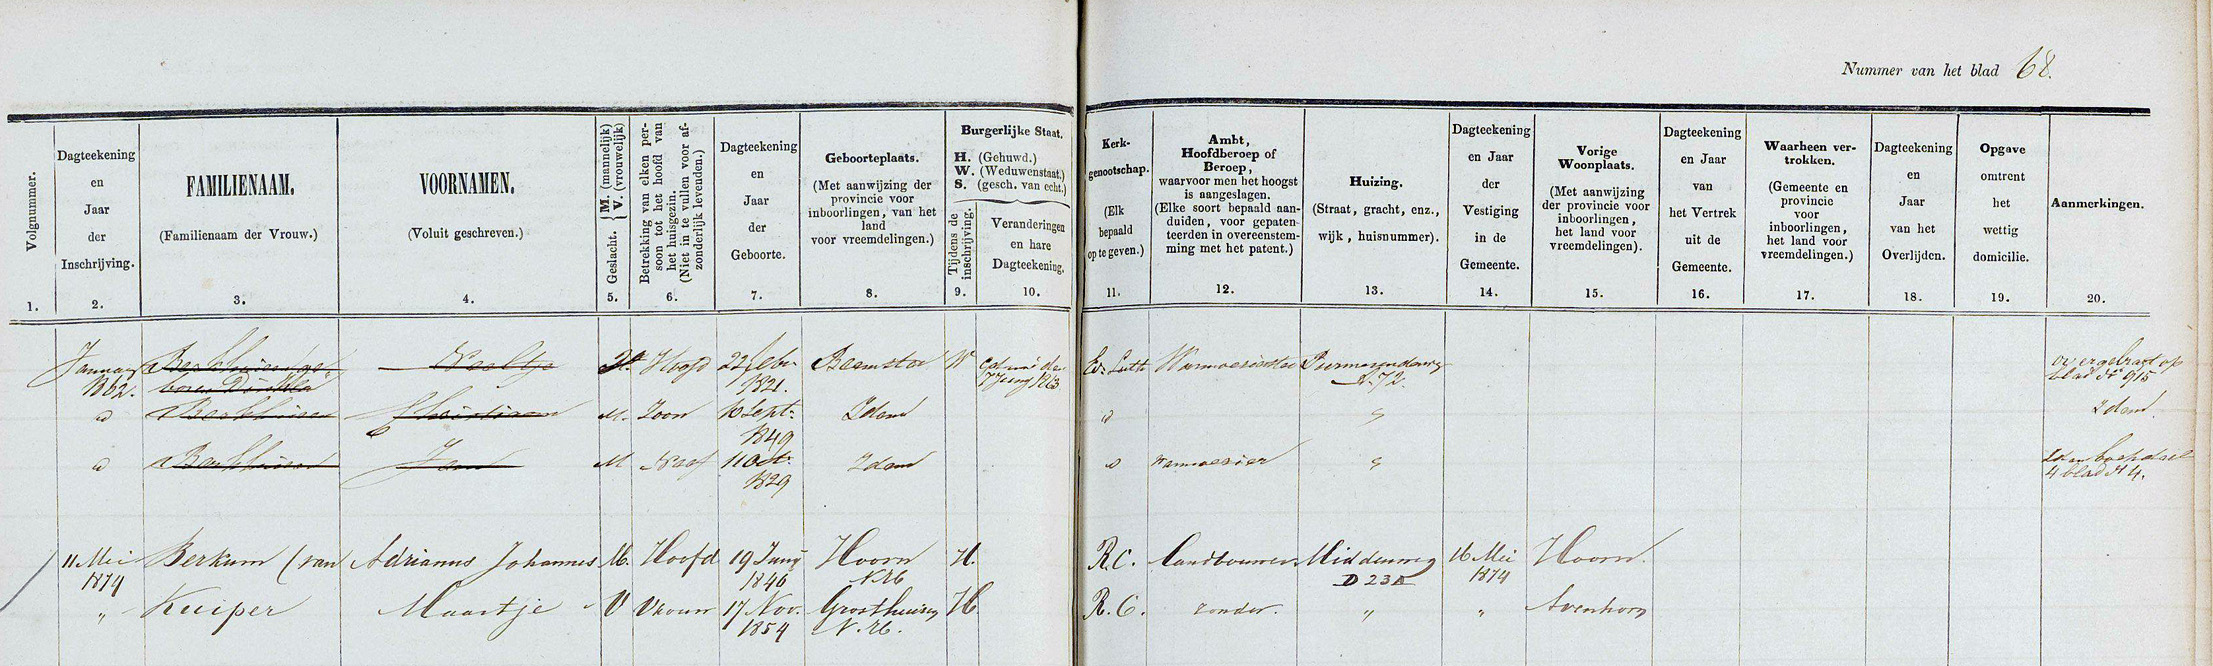 Nummer van het blad 68.
Volgnummer.
1.
Dagteekening
en
Jaar
der
Inschrijving.
2.
FAMILIENAAM.
(Familienaam der Vrouw.)
3.
VOORNAMEN.
(Voluit geschreven.)
4.
Geslacht. { M. (mannelijk)
V. (vrouwelijk)
5.
Betrekking van elken per-
soon tot het hoofd van
het huisgezin.
(Niet in te vullen voor af-
zonderlijk levenden.)
6.
Dagteekening
en
Jaar
der
Geboorte.
7.
Geboorteplaats.
(Met aanwijzing der
provincie voor
inboorlingen, van het
land
voor vreemdelingen.)
8.
Burgerlijke Staat.
H. (Gehuwd.)
W. (Weduwenstaat.)
S. (gesch. van echt.)
Tijdens de
inschrijving.
9.
Veranderingen
en hare
Dagteekening.
10.
Kerk-
genootschap.
(Elk
bepaald
op te geven.)
11.
Ambt,
Hoofdberoep of
Beroep,
waarvoor men het hoogst
is aangeslagen.
(Elke soort bepaald aan-
duiden, voor gepaten-
teerden in overeenstem-
ming met het patent.)
12.
Huizing.
(Straat, gracht, enz.,
wijk, huisnummer).
13.
Dagteekening
en Jaar
der
Vestiging
in de
Gemeente.
14.
Vorige
Woonplaats.
(Met aanwijzing
der provincie voor
inboorlingen,
het land voor
vreemdelingen).
15.
Dagteekening
en Jaar
van
het Vertrek
uit de
Gemeente.
16.
Waarheen ver-
trokken.
(Gemeente en
provincie
voor
inboorlingen,
het land voor
vreemdelingen.)
17.
Dagteekening
en
Jaar
van het
Overlijden.
18.
Opgave
omtrent
het
wettig
domicilie.
19.
Aanmerkingen.
20.
Januarij Neeltje Hoofd 22 febr Beemster W Ev: Luth Purmerenderweg overgebragt op
1862. 1821. 72. blad No 915
Christiaan M. Zoon 10 Sept: Idem Idem.
1849
Jan M 11 Oct: Idem warmoesier
1829 4 blad No 4.
11 Mei Berkum (van Adrianus Johannes M. Hoofd 19 Junij Hoorn H. R.C. Landbouwer Middenweg 16 Mei Hoorn.
1874 1846 N.H. D 23 1874
" Kuiper Maartje V Vrouw 17 Nov. Grosthuizen H. R.C. zonder. " " Avenhorn
1854 N.H.